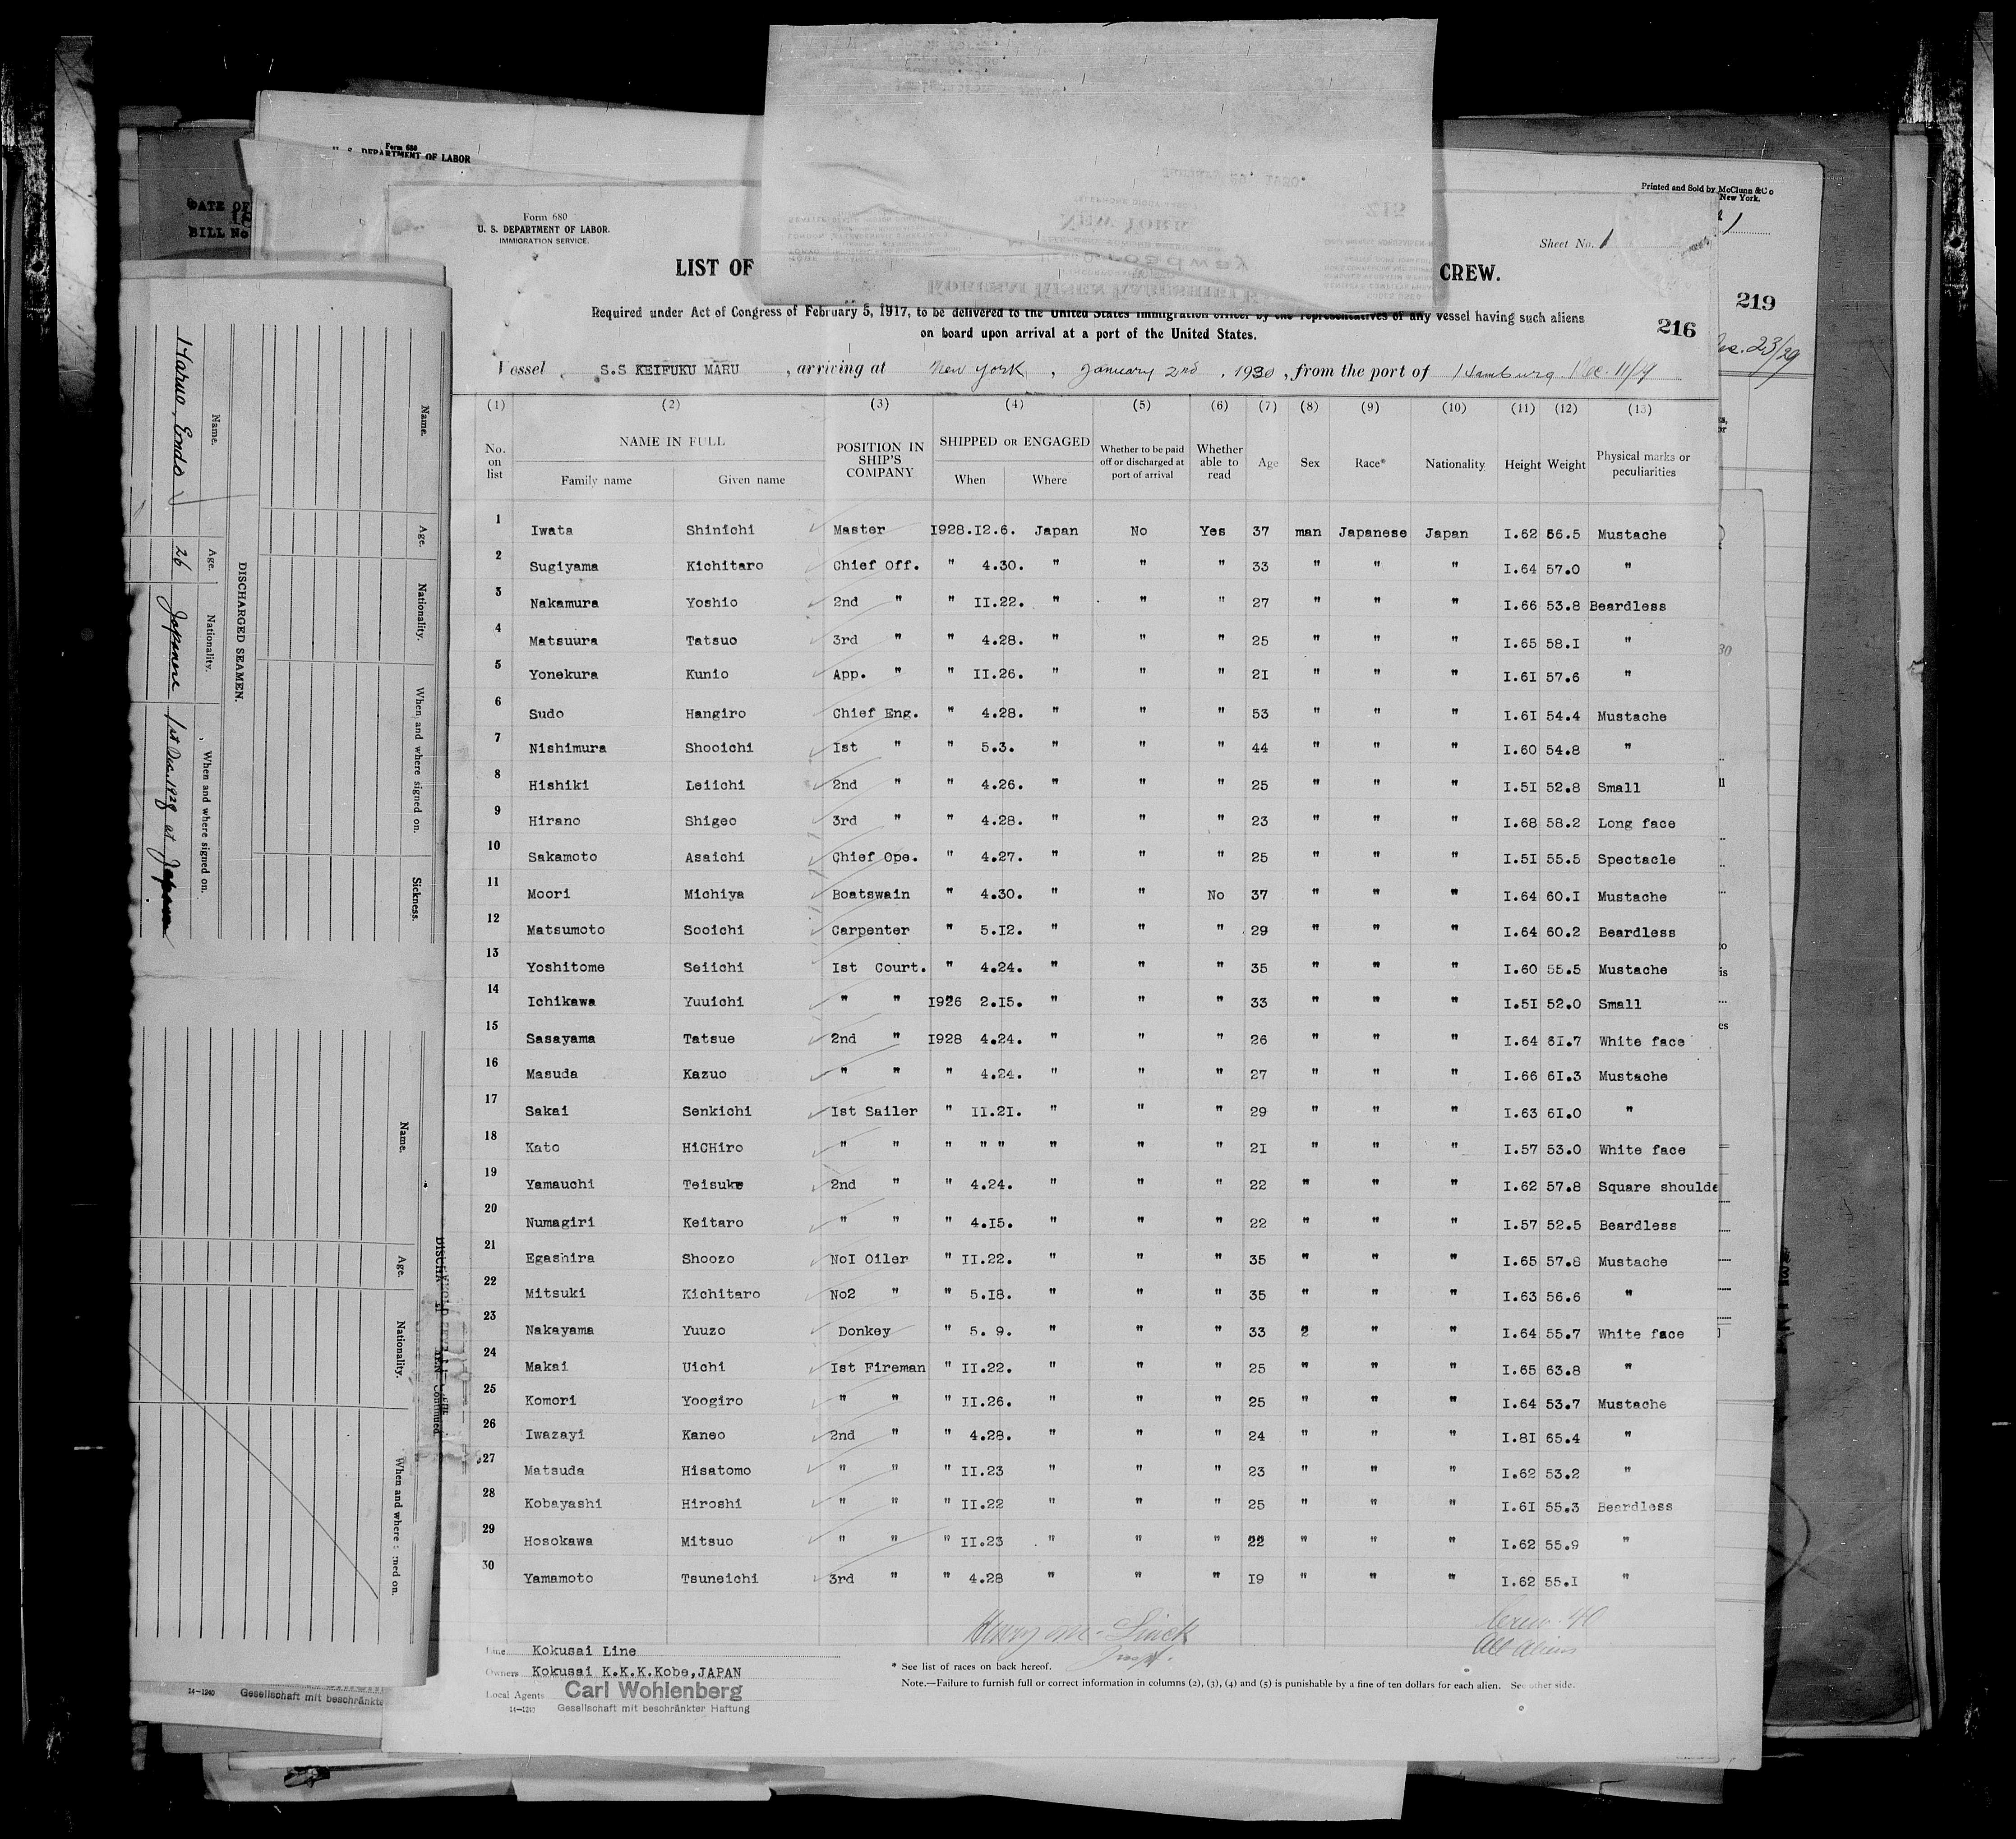 Form 680
U. S. DEPARTMENT OF LABOR
DATE OF
BILL No
Printed and Sold by McClunn & Co
New York.
219
23/29
Form 680
U. S. DEPARTMENT OF LABOR.
IMMIGRATION SERVICE.
Sheet No. 1
LIST OF CREW.
Required under Act of Congress of February 5, 1917, to be delivered to the United States Immigration officer by the representatives of any vessel having such aliens
on board upon arrival at a port of the United States.
216
Vessel S.S KEIFUKU MARU, arriving at New York, January 2nd, 1930, from the port of Hamburg
(1) (2) (3) (4) (5) (6) (7) (8) (9) (10) (11) (12) (13)
No. on list NAME IN FULL Family name Given name POSITION IN SHIP'S COMPANY SHIPPED OR ENGAGED When Where Whether to be paid off or discharged at port of arrival Whether able to read Age Sex Race* Nationality Height Weight Physical marks or peculiarities
1 Iwata Shinichi Master 1928.12.6. Japan No Yes 37 man Japanese Japan I.62 56.5 Mustache
2 Sugiyama Kichitaro Chief Off. " 4.30. " " " 33 " " " I.64 57.0 "
3 Nakamura Yoshio 2nd " " II.22. " " " 27 " " " I.66 53.8 Beardless
4 Matsuura Tatsuo 3rd " " 4.28. " " " 25 " " " I.65 58.I "
5 Yonekura Kunio App. " " II.26. " " " 2I " " " I.6I 57.6 "
6 Sudo Hangiro Chief Eng. " 4.28. " " " 53 " " " I.6I 54.4 Mustache
7 Nishimura Shooichi Ist " " 5.3. " " " 44 " " " I.60 54.8 "
8 Hishiki Leiichi 2nd " " 4.26. " " " 25 " " " I.5I 52.8 Small
9 Hirano Shigeo 3rd " " 4.28. " " " 23 " " " I.68 58.2 Long face
10 Sakamoto Asaichi Chief Ope. " 4.27. " " " 25 " " " I.5I 55.5 Spectacle
11 Moori Michiya Boatswain " 4.30. " " No 37 " " " I.64 60.I Mustache
12 Matsumoto Sooichi Carpenter " 5.I2. " " " 29 " " " I.64 60.2 Beardless
13 Yoshitome Seiichi Ist Court. " 4.24. " " " 35 " " " I.60 55.5 Mustache
14 Ichikawa Yuuichi " " I926 2.I5. " " " 33 " " " I.5I 52.0 Small
15 Sasayama Tatsue 2nd " I928 4.24. " " " 26 " " " I.64 6I.7 White face
16 Masuda Kazuo " " " 4.24. " " " 27 " " " I.66 6I.3 Mustache
17 Sakai Senkichi Ist Sailer " II.2I. " " " 29 " " " I.63 6I.0 "
18 Kato HiCHiro " " " " " " " " 2I " " " I.57 53.0 White face
19 Yamauchi Teisuke 2nd " " 4.24. " " " 22 " " " I.62 57.8 Square shoulde
20 Numagiri Keitaro " " " 4.I5. " " " 22 " " " I.57 52.5 Beardless
21 Egashira Shoozo NoI Oiler " II.22. " " " 35 " " " I.65 57.8 Mustache
22 Mitsuki Kichitaro No2 " " 5.I8. " " " 35 " " " I.63 56.6 "
23 Nakayama Yuuzo Donkey " 5. 9. " " " 33 2 " " I.64 55.7 White face
24 Makai Uichi Ist Fireman " II.22. " " " 25 " " " I.65 63.8 "
25 Komori Yoogiro " " " II.26. " " " 25 " " " I.64 53.7 Mustache
26 Iwazayi Kaneo 2nd " " 4.28. " " " 24 " " " I.8I 65.4 "
27 Matsuda Hisatomo " " " II.23 " " " 23 " " " I.62 53.2 "
28 Kobayashi Hiroshi " " " II.22 " " " 25 " " " I.6I 55.3 Beardless
29 Hosokawa Mitsuo " " " II.23 " " " 22 " " " I.62 55.9 "
30 Yamamoto Tsuneichi 3rd " " 4.28 " " " I9 " " " I.62 55.I "
Crew 40
All Aliens
Line Kokusai Line
Owners Kokusai K.K.K.Kobe,JAPAN
Local Agents Carl Wohlenberg
14—1240 Gesellschaft mit beschränkter Haftung
* See list of races on back hereof.
Note.—Failure to furnish full or correct information in columns (2), (3), (4) and (5) is punishable by a fine of ten dollars for each alien. See other side.
Name. Age. Nationality. When and where signed on. Sickness.
DISCHARGED SEAMEN.
Name. Age. Nationality. When and where signed on.
Haruo, Endo 26 Japanese 1st Dec. 1928 at Japan
Name. Age. Nationality. When and where
14—1240 Gesellschaft mit beschränkte